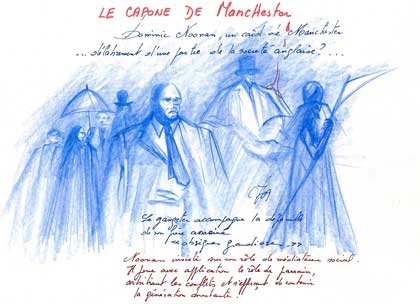 LE CAPONE DE Manchester
Dominic Noonan, un caïd de Manchester
... délabrement d'une partie de la société anglaise ? ...
Le gangster accompagne la dépouille
de son frère assassiné
« obsèques grandioses »
Noonan insiste sur son rôle de médiateur social.
Il joue avec application le rôle de parrain,
arbitrant les conflits et s'efforçant de contenir
la génération montante !!